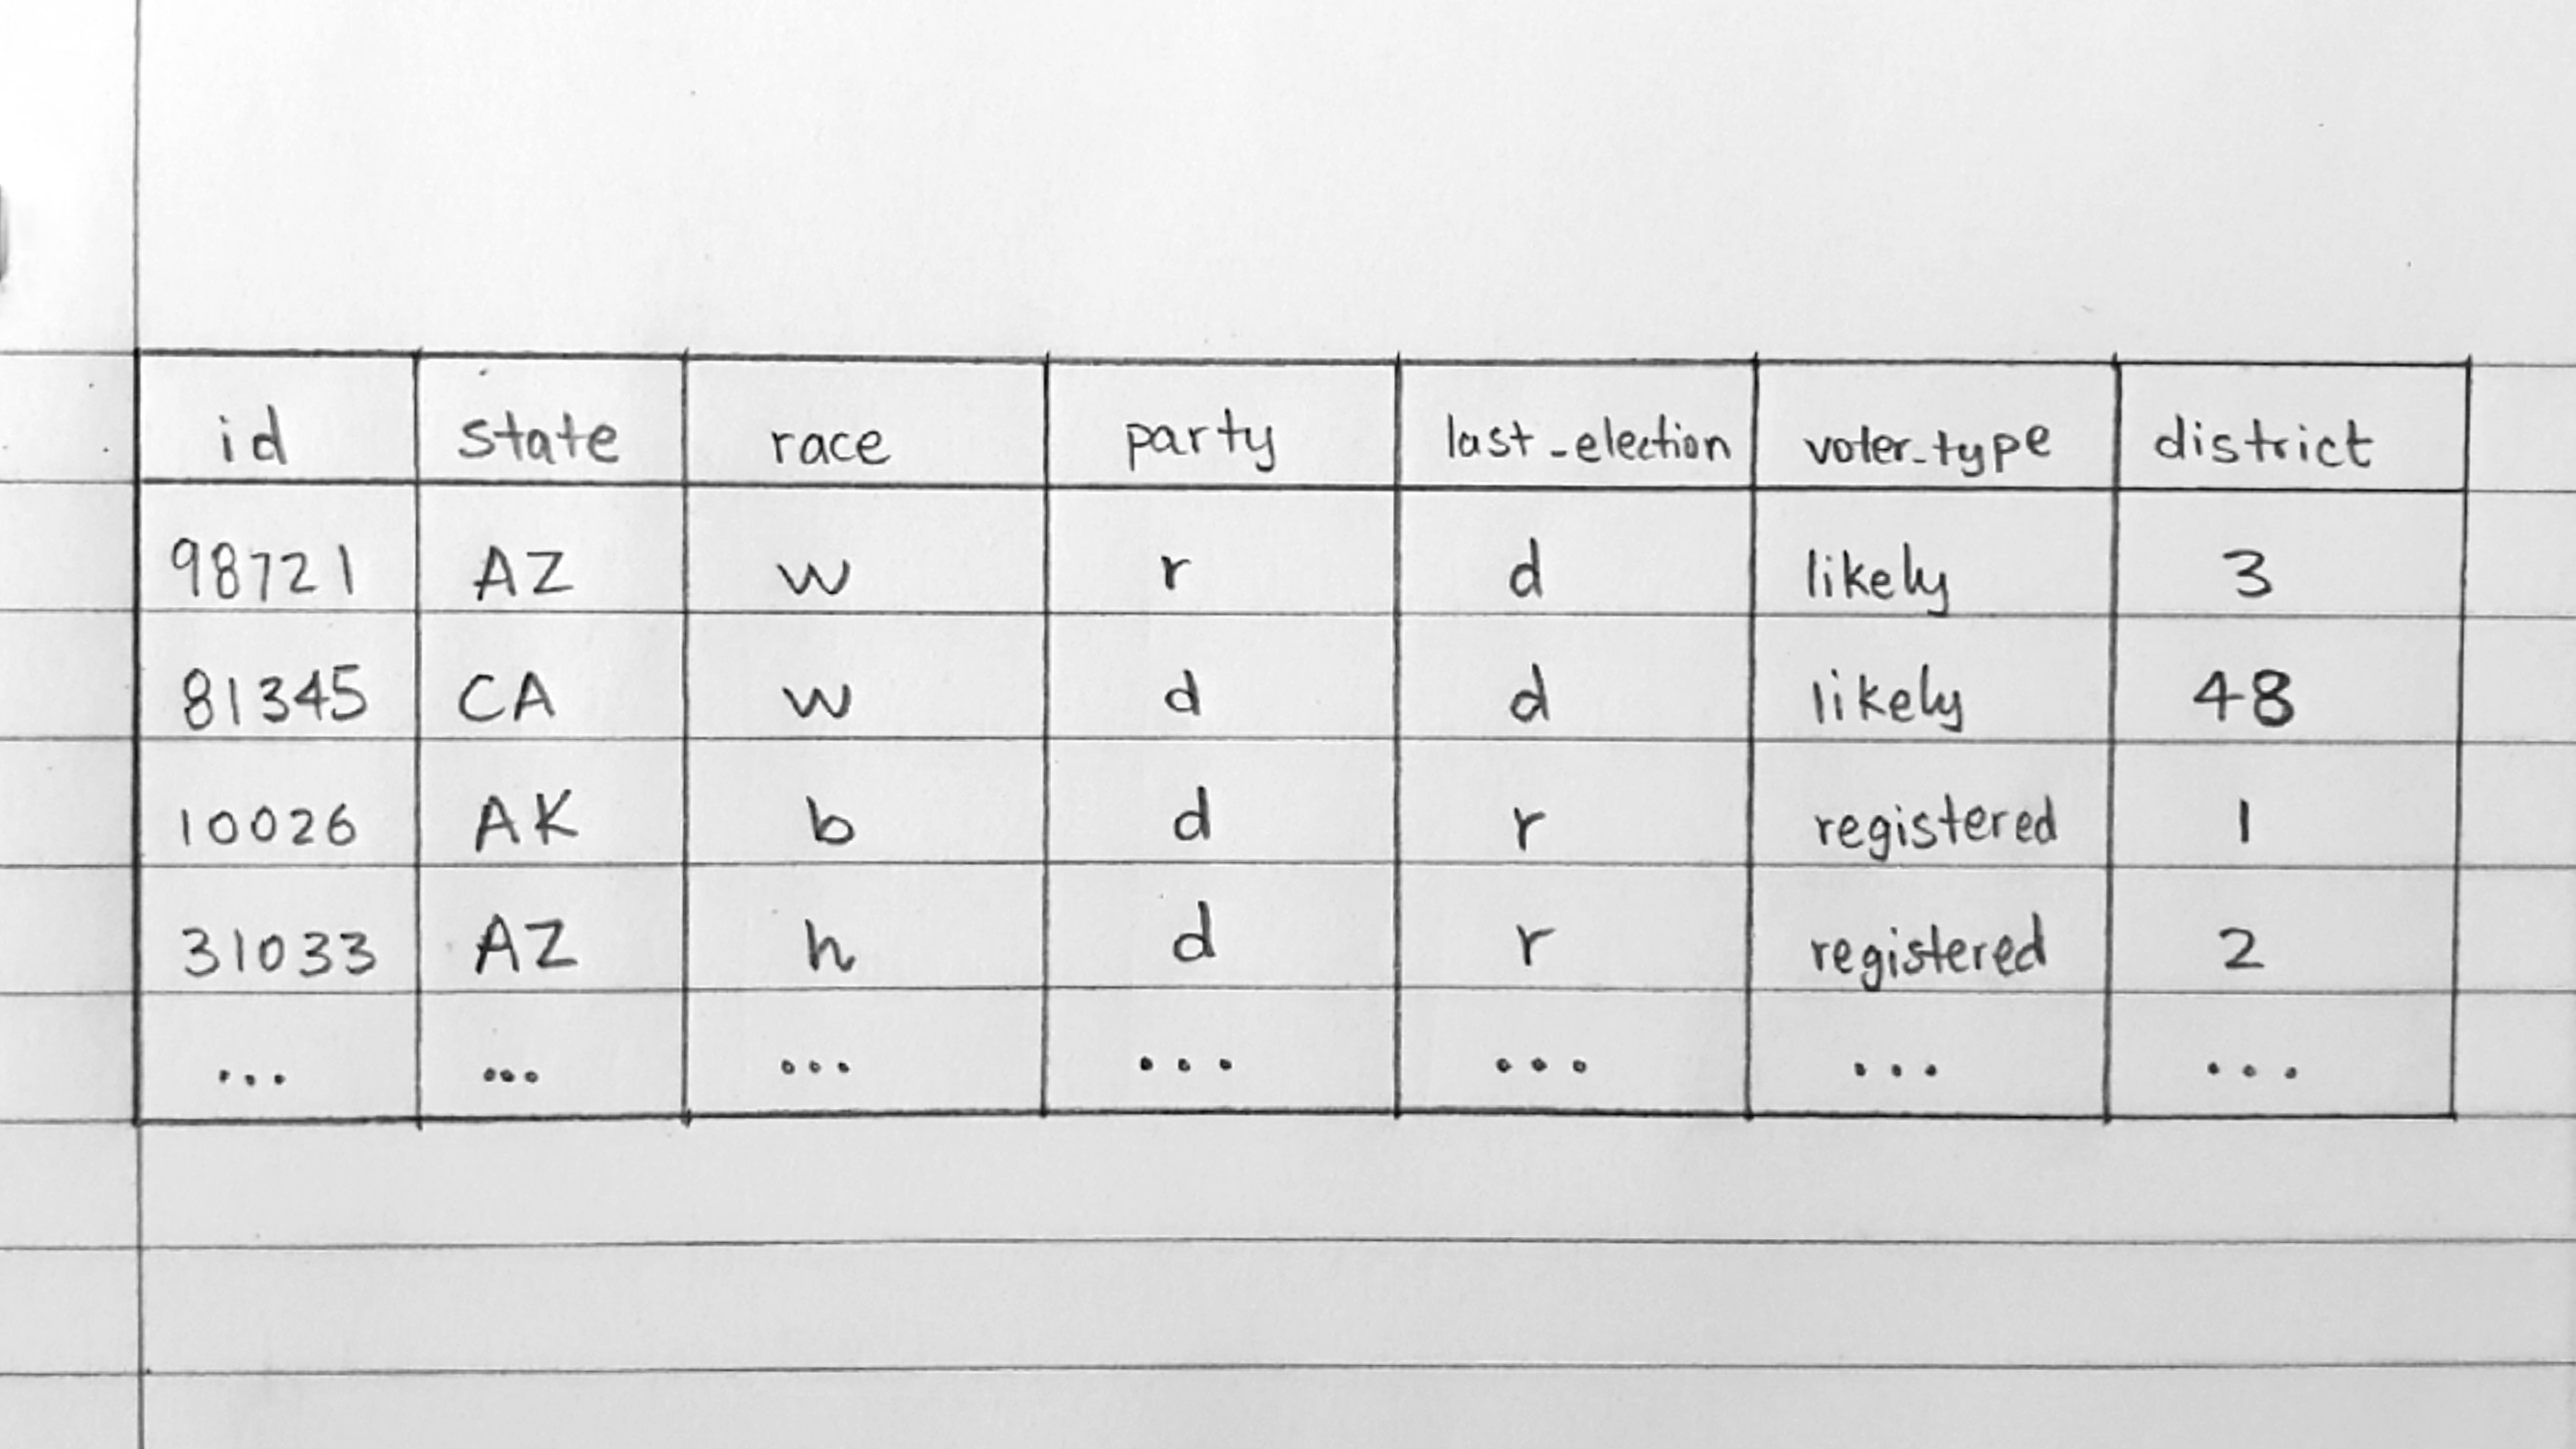 id state race party last_election voter_type district
98721 AZ w r d likely 3
81345 CA w d d likely 48
10026 AK b d r registered 1
31033 AZ h d r registered 2
... ... ... ... ... ... ...